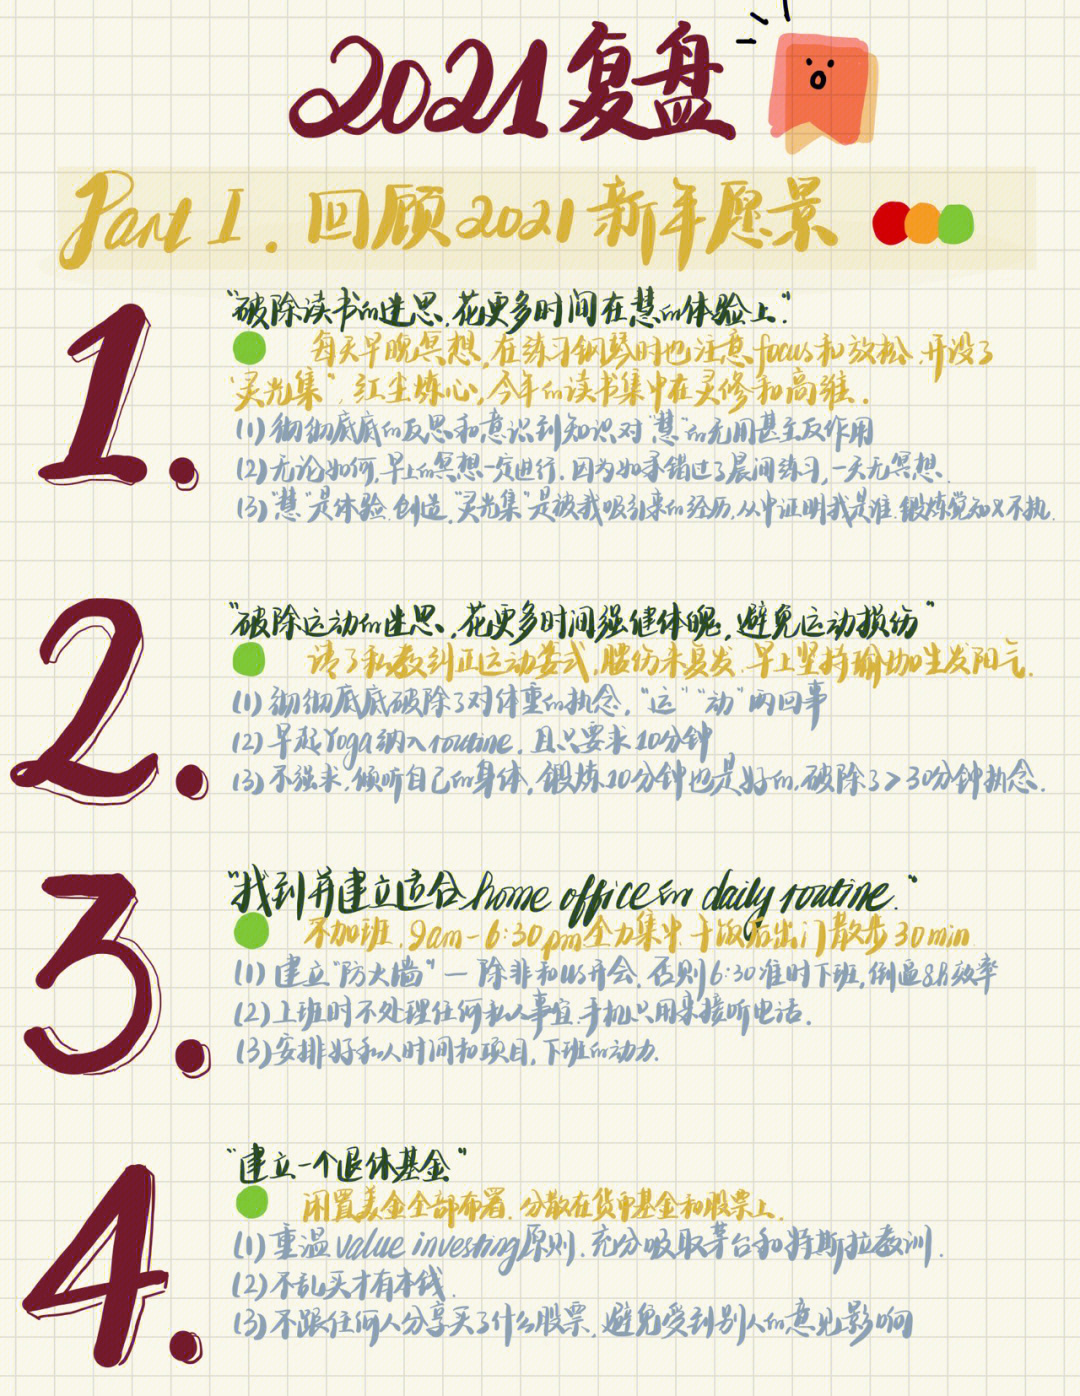 2021复盘
Part I. 回顾2021新年愿景
1.
"破除读书的迷思,花更多时间在慧的体验上."
每天早晚冥想,在练习钢琴时也注意focus和放松,开设了
"灵光集",红尘炼心,今年的读书集中在灵修和高维.
(1)彻彻底底的反思和意识到知识对"慧"的无用甚至反作用
(2)无论如何,早上的冥想一定进行,因为如果错过了晨间练习,一天无冥想.
(3)"慧"是体验.创造"灵光集"是被我吸引来的经历,从中证明我是谁.锻炼觉知又不执.
2.
"破除运动的迷思,花更多时间强健体魄,避免运动损伤"
请了私教纠正运动姿式,腰伤未复发.早上坚持瑜伽生发阳气.
(1)彻彻底底破除了对体重的执念,"运""动"两回事
(2)早起Yoga纳入routine,且只要求10分钟
(3)不强求,倾听自己的身体,锻炼10分钟也是好的,破除了>30分钟执念.
3.
"找到并建立适合home office的daily routine."
不加班,9am-6:30pm全力集中.午饭后出门散步30min
(1)建立"防火墙"—除非和US开会,否则6:30准时下班,倒逼8h效率
(2)上班时不处理任何私人事宜.手机只用来接听电话.
(3)安排好私人时间和项目,下班的动力.
4.
"建立一个退休基金"
闲置美金全部布署.分散在货币基金和股票上.
(1)重温value investing原则.充分吸取茅台和特斯拉教训.
(2)不乱买才有本钱.
(3)不跟任何人分享买了什么股票,避免受到别人的意见影响